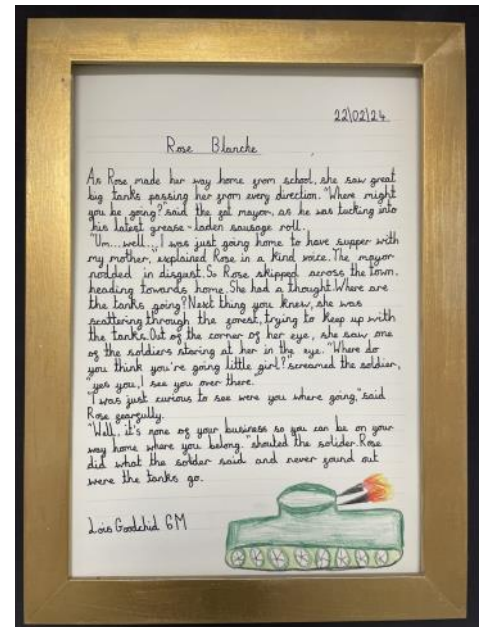 22/02/24
Rose Blanche
As Rose made her way home from school, she saw great
big tanks passing her from every direction. "Where might
you be going?" said the fat mayor, as he was tucking into
his latest grease-laden sausage roll.
"Um...well... I was just going home to have supper with
my mother," explained Rose in a kind voice. The mayor
nodded in disgust. So Rose skipped across the town,
heading towards home. She had a thought. Where are
the tanks going? Next thing you knew, she was
scattering through the forest, trying to keep up with
the tanks. Out of the corner of her eye, she saw one
of the soldiers staring at her in the eye. "Where do
you think you're going little girl?" screamed the soldier,
"yes you, I see you over there."
"I was just curious to see were you where going," said
Rose fearfully.
"Well, it's none of your business so you can be on your
way home where you belong." shouted the solider. Rose
did what the solider said and never found out
were the tanks go.
Lois Goodchid 6M